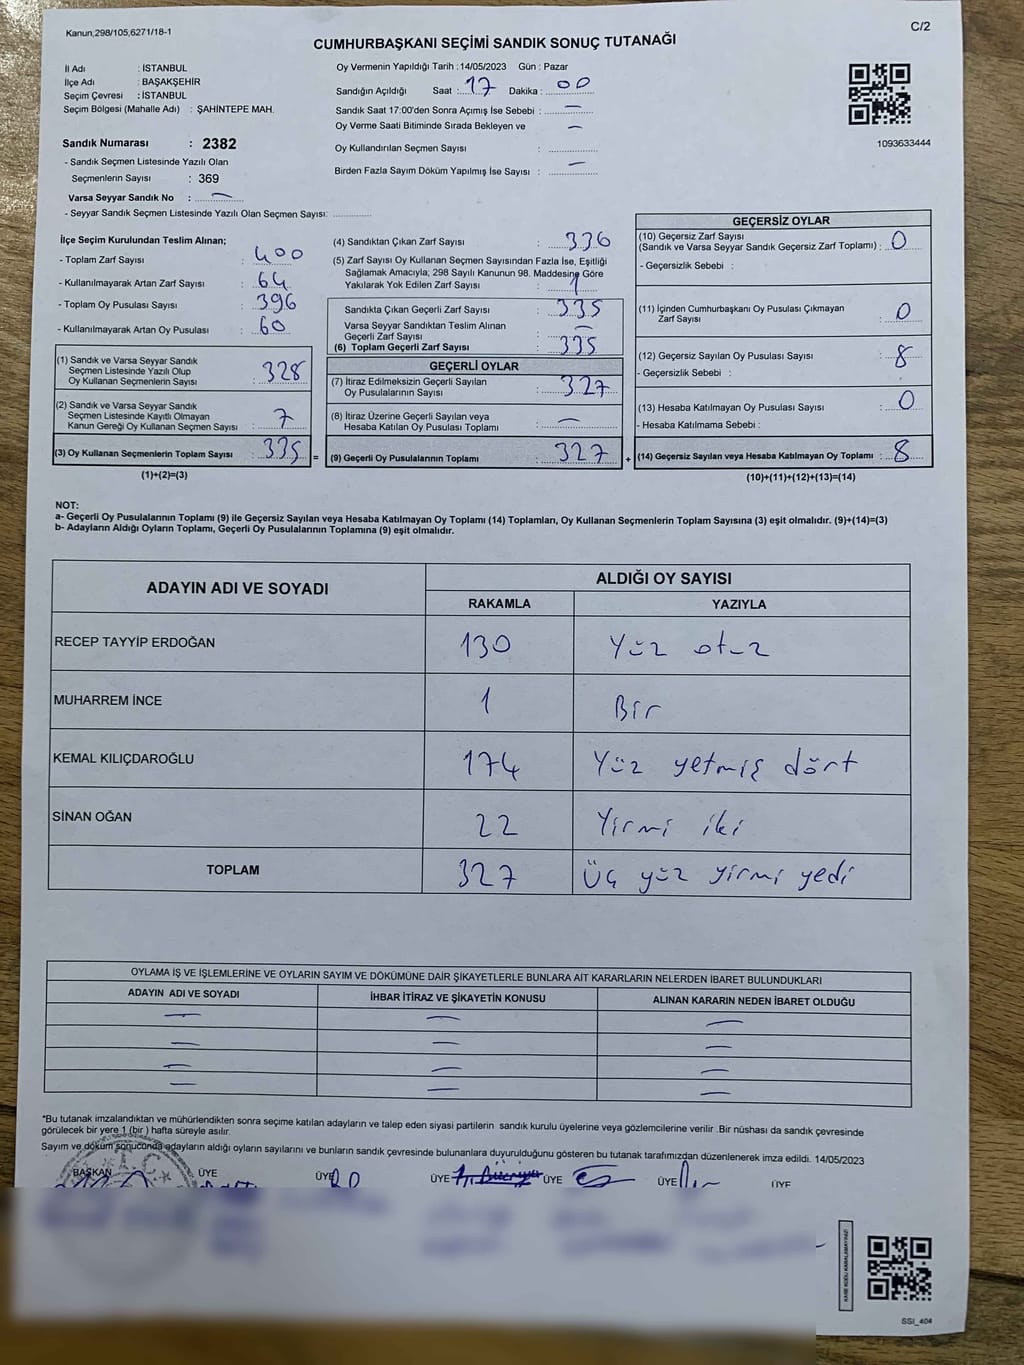 Kanun,298/105,6271/18-1
C/2
CUMHURBAŞKANI SEÇİMİ SANDIK SONUÇ TUTANAĞI
İl Adı : İSTANBUL
İlçe Adı : BAŞAKŞEHİR
Seçim Çevresi : İSTANBUL
Seçim Bölgesi (Mahalle Adı) : ŞAHİNTEPE MAH.
Sandık Numarası : 2382
- Sandık Seçmen Listesinde Yazılı Olan
Seçmenlerin Sayısı : 369
Varsa Seyyar Sandık No : —
- Seyyar Sandık Seçmen Listesinde Yazılı Olan Seçmen Sayısı:
Oy Vermenin Yapıldığı Tarih : 14/05/2023 Gün : Pazar
Sandığın Açıldığı Saat : 17 Dakika : 00
Sandık Saat 17:00'den Sonra Açımış İse Sebebi : —
Oy Verme Saati Bitiminde Sırada Bekleyen ve —
Oy Kullandırılan Seçmen Sayısı :
Birden Fazla Sayım Döküm Yapılmış İse Sayısı : —
1093633444
İlçe Seçim Kurulundan Teslim Alınan;
- Toplam Zarf Sayısı : 400
- Kullanılmayarak Artan Zarf Sayısı : 64
- Toplam Oy Pusulası Sayısı : 396
- Kullanılmayarak Artan Oy Pusulası : 60
(1) Sandık ve Varsa Seyyar Sandık
Seçmen Listesinde Yazılı Olup
Oy Kullanan Seçmenlerin Sayısı : 328
(2) Sandık ve Varsa Seyyar Sandık
Seçmen Listesinde Kayıtlı Olmayan
Kanun Gereği Oy Kullanan Seçmen Sayısı : 7
(3) Oy Kullanan Seçmenlerin Toplam Sayısı : 335
(1)+(2)=(3)
(4) Sandıktan Çıkan Zarf Sayısı : 336
(5) Zarf Sayısı Oy Kullanan Seçmen Sayısından Fazla İse, Eşitliği
Sağlamak Amacıyla; 298 Sayılı Kanunun 98. Maddesine Göre
Yakılarak Yok Edilen Zarf Sayısı : 1
Sandıkta Çıkan Geçerli Zarf Sayısı : 335
Varsa Seyyar Sandıktan Teslim Alınan
Geçerli Zarf Sayısı : —
(6) Toplam Geçerli Zarf Sayısı : 335
GEÇERLİ OYLAR
(7) İtiraz Edilmeksizin Geçerli Sayılan
Oy Pusulalarının Sayısı : 327
(8) İtiraz Üzerine Geçerli Sayılan veya
Hesaba Katılan Oy Pusulası Toplamı : —
= (9) Geçerli Oy Pusulalarının Toplamı : 327
GEÇERSİZ OYLAR
(10) Geçersiz Zarf Sayısı
(Sandık ve Varsa Seyyar Sandık Geçersiz Zarf Toplamı) : 0
- Geçersizlik Sebebi :
(11) İçinden Cumhurbaşkanı Oy Pusulası Çıkmayan
Zarf Sayısı : 0
(12) Geçersiz Sayılan Oy Pusulası Sayısı : 8
- Geçersizlik Sebebi :
(13) Hesaba Katılmayan Oy Pusulası Sayısı : 0
- Hesaba Katılmama Sebebi :
+ (14) Geçersiz Sayılan veya Hesaba Katılmayan Oy Toplamı : 8
(10)+(11)+(12)+(13)=(14)
NOT:
a- Geçerli Oy Pusulalarının Toplamı (9) ile Geçersiz Sayılan veya Hesaba Katılmayan Oy Toplamı (14) Toplamları, Oy Kullanan Seçmenlerin Toplam Sayısına (3) eşit olmalıdır. (9)+(14)=(3)
b- Adayların Aldığı Oyların Toplamı, Geçerli Oy Pusulalarının Toplamına (9) eşit olmalıdır.
ADAYIN ADI VE SOYADI
ALDIĞI OY SAYISI
RAKAMLA YAZIYLA
RECEP TAYYİP ERDOĞAN 130 Yüz otuz
MUHARREM İNCE 1 Bir
KEMAL KILIÇDAROĞLU 174 Yüz yetmiş dört
SİNAN OĞAN 22 Yirmi iki
TOPLAM 327 Üç yüz yirmi yedi
OYLAMA İŞ VE İŞLEMLERİNE VE OYLARIN SAYIM VE DÖKÜMÜNE DAİR ŞİKAYETLERLE BUNLARA AİT KARARLARIN NELERDEN İBARET BULUNDUKLARI
ADAYIN ADI VE SOYADI İHBAR İTİRAZ VE ŞİKAYETİN KONUSU ALINAN KARARIN NEDEN İBARET OLDUĞU
— — —
— — —
— — —
— — —
*Bu tutanak imzalandıktan ve mühürlendikten sonra seçime katılan adayların ve talep eden siyasi partilerin sandık kurulu üyelerine veya gözlemcilerine verilir .Bir nüshası da sandık çevresinde
görülecek bir yere 1 (bir ) hafta süreyle asılır.
Sayım ve döküm sonucunda adayların aldığı oyların sayılarını ve bunların sandık çevresinde bulunanlara duyurulduğunu gösteren bu tutanak tarafımızdan düzenlenerek imza edildi. 14/05/2023
BAŞKAN ÜYE ÜYE ÜYE ÜYE ÜYE ÜYE
T.C.
SSI_404